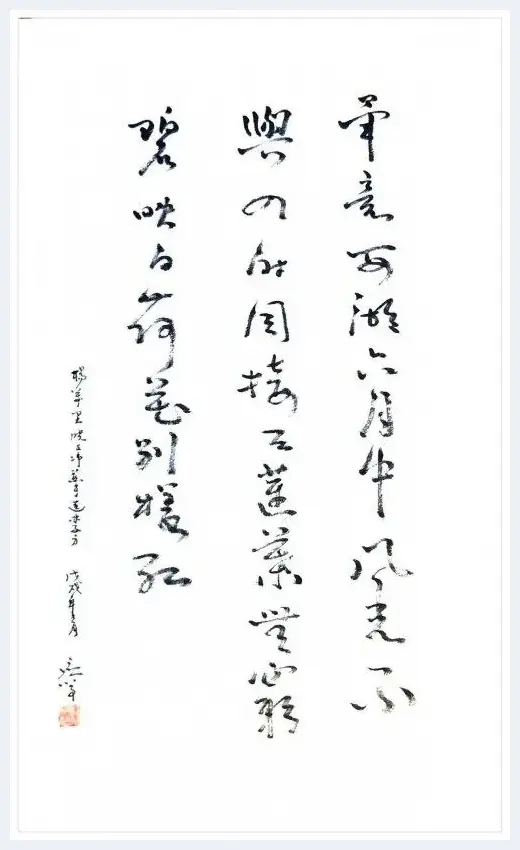 畢竟西湖六月中風光不
與四時同接天蓮葉無窮
碧映日荷花別樣紅
楊萬里曉出净慈寺送林子方 戊戌年月